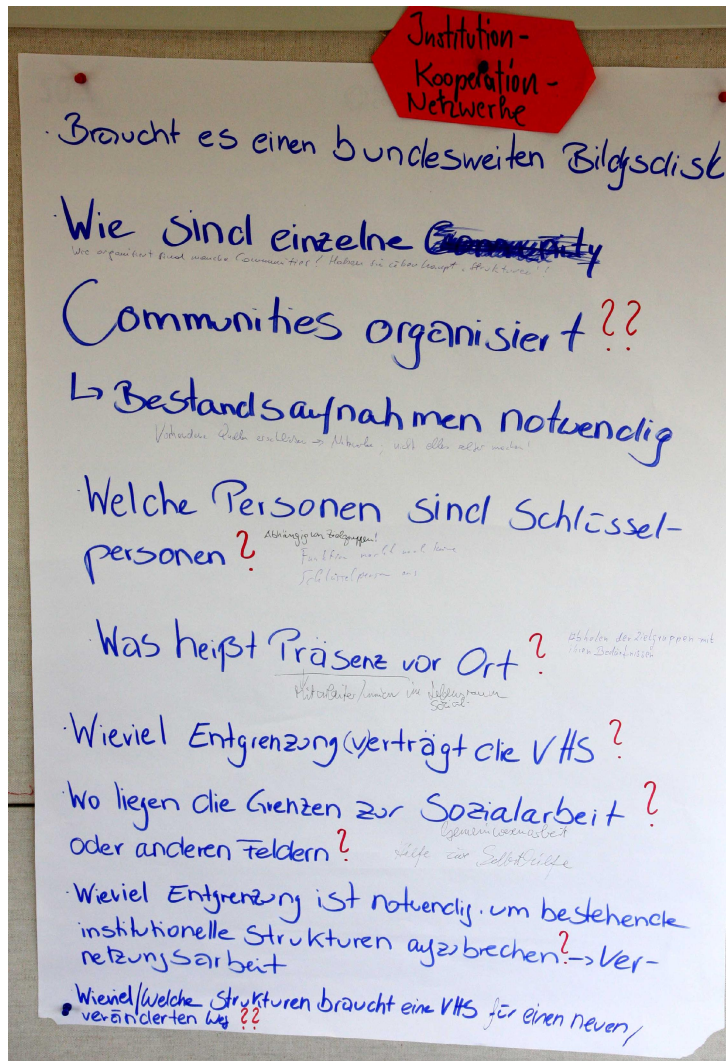 Institution-
Kooperation-
Netzwerke
· Braucht es einen bundesweiten Bildgsdisk
Wie sind einzelne
Wie organisiert sind manche Communities? Haben sie überhaupt Strukturen?
Communities organisiert ??
↳ Bestandsaufnahmen notwendig
Vorhandene Quellen erschliessen → nicht alles selber machen!
Welche Personen sind Schlüssel-
personen ?
Abhängig von Zielgruppen!
Funktion macht noch keine
Schlüsselperson aus
Was heißt Präsenz vor Ort ?
Abholen der Zielgruppen mit
ihren Bedürfnissen
Mitarbeiter/innen im
Sozial-
· Wieviel Entgrenzung (v)erträgt die VHS ?
· Wo liegen die Grenzen zur Sozialarbeit ?
Gemeinwesenarbeit
oder anderen Feldern ?
Hilfe zur Selbsthilfe
· Wieviel Entgrenzung ist notwendig. um bestehende
institutionelle Strukturen aufzubrechen ? → Ver-
netzungsarbeit
· Wieviel/Welche Strukturen braucht eine VHS für einen neuen/
veränderten Weg ??